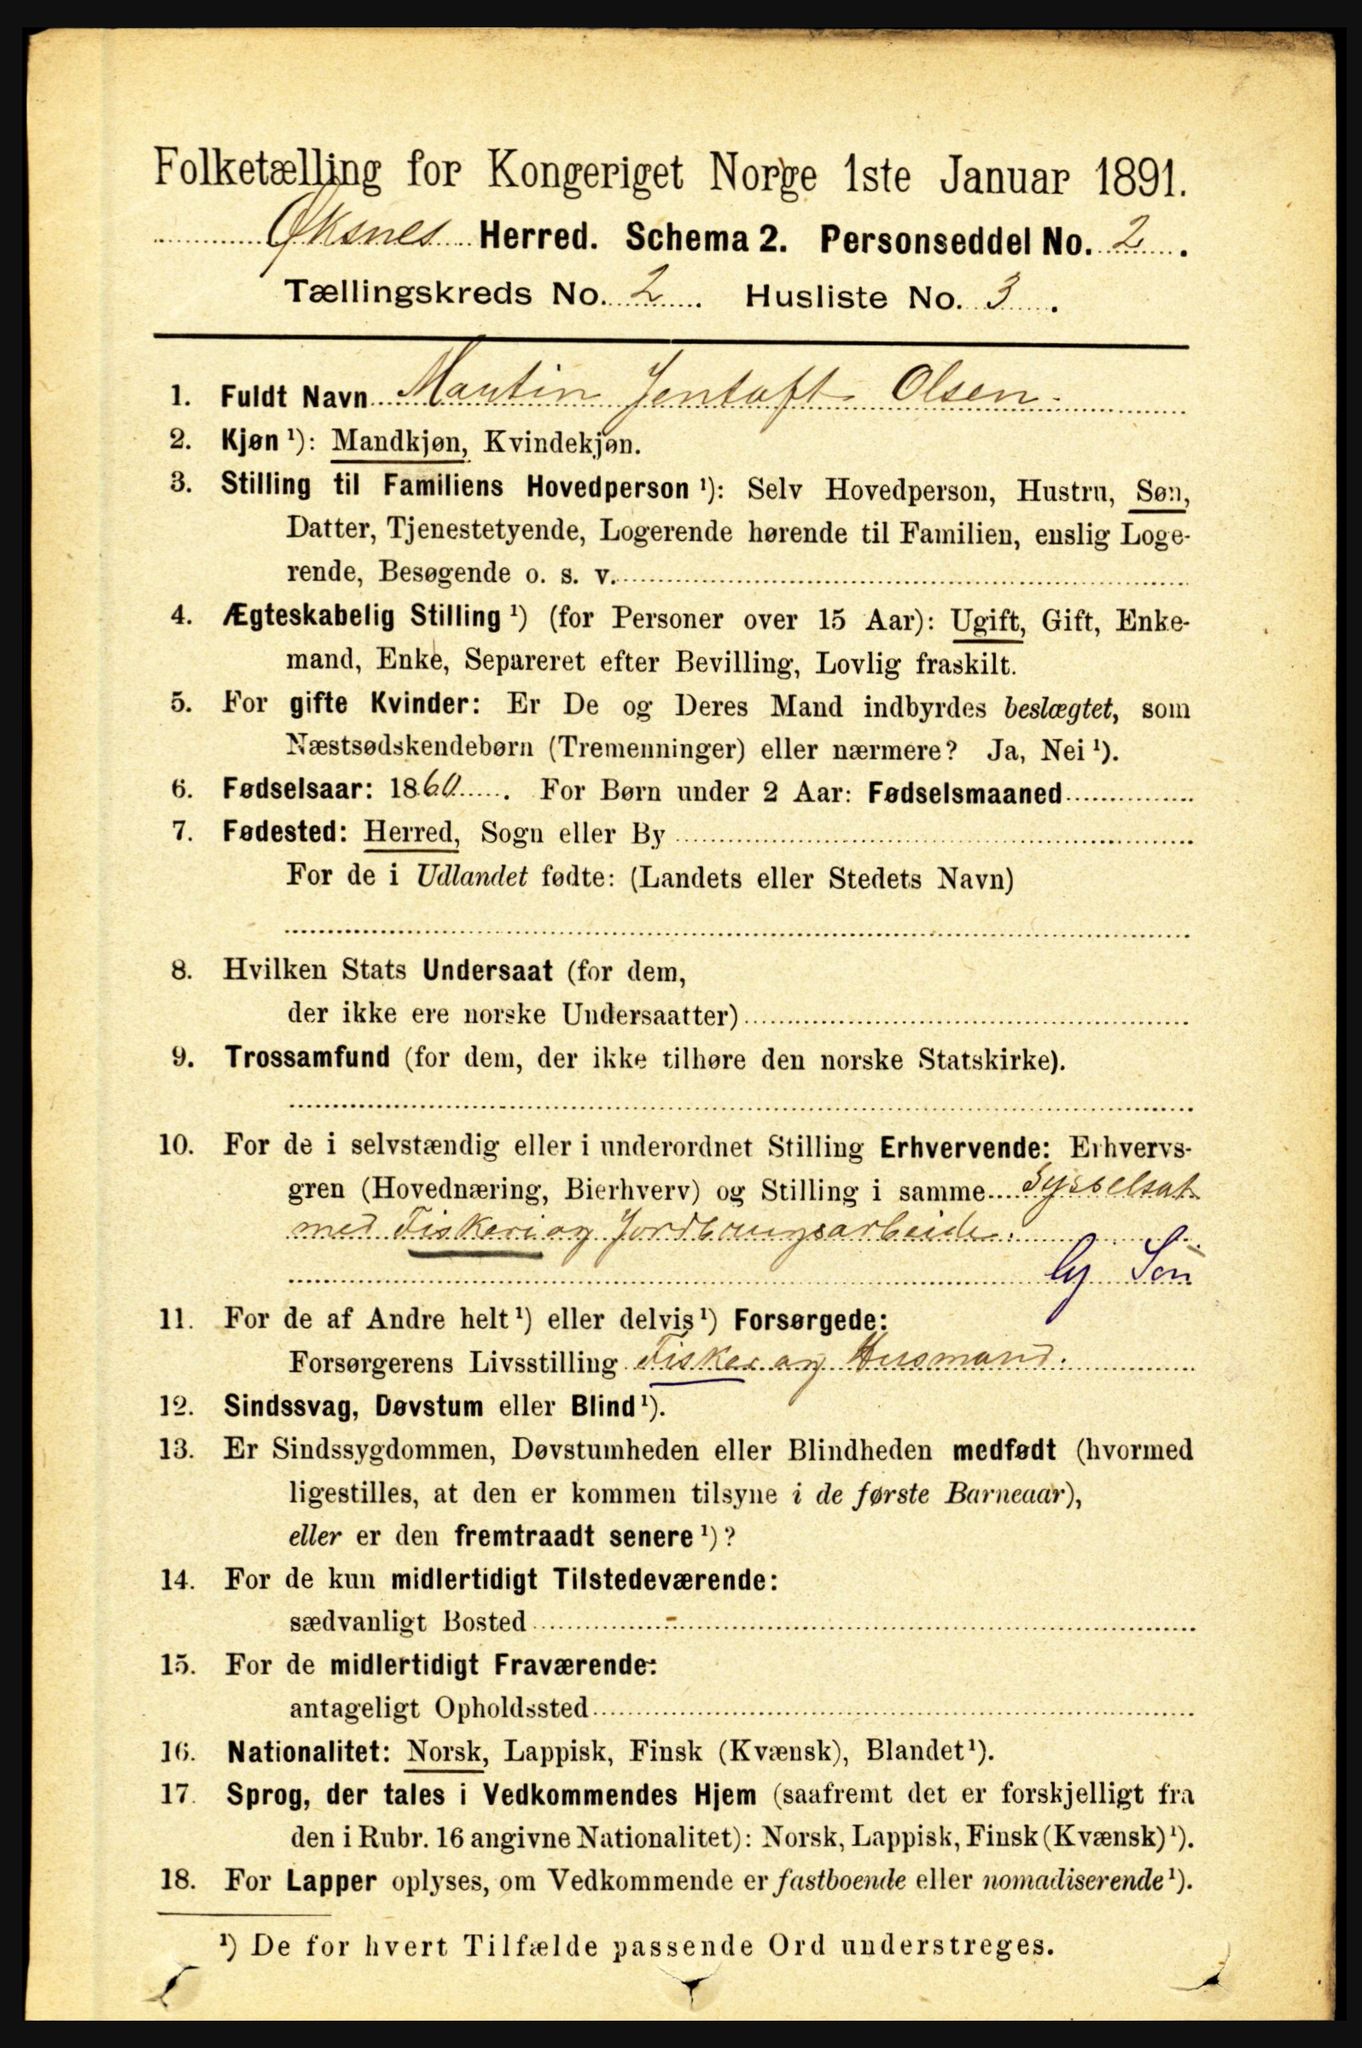 Folketælling for Kongeriget Norge 1ste Januar 1891.
Øksnes Herred. Schema 2. Personseddel No. 2.
Tællingskreds No. 2. Husliste No. 3.
1. Fuldt Navn Martin Jentoft Olsen.
2. Kjøn ¹): Mandkjøn, Kvindekjøn.
3. Stilling til Familiens Hovedperson ¹): Selv Hovedperson, Hustru, Søn,
Datter, Tjenestetyende, Logerende hørende til Familien, enslig Loge-
rende, Besøgende o. s. v.
4. Ægteskabelig Stilling ¹) (for Personer over 15 Aar): Ugift, Gift, Enke-
mand, Enke, Separeret efter Bevilling, Lovlig fraskilt.
5. For gifte Kvinder: Er De og Deres Mand indbyrdes beslægtet, som
Næstsødskendebørn (Tremenninger) eller nærmere? Ja, Nei ¹).
6. Fødselsaar: 1860. For Børn under 2 Aar: Fødselsmaaned
7. Fødested: Herred, Sogn eller By
For de i Udlandet fødte: (Landets eller Stedets Navn)
8. Hvilken Stats Undersaat (for dem,
der ikke ere norske Undersaatter)
9. Trossamfund (for dem, der ikke tilhøre den norske Statskirke).
10. For de i selvstændig eller i underordnet Stilling Erhvervende: Erhvervs-
gren (Hovednæring, Bierhverv) og Stilling i samme Sysselsat
med Fiskeri og Jordbrugsarbeide.
Søn
11. For de af Andre helt ¹) eller delvis ¹) Forsørgede:
Forsørgerens Livsstilling Fisker og Husmand.
12. Sindssvag, Døvstum eller Blind ¹).
13. Er Sindssygdommen, Døvstumheden eller Blindheden medfødt (hvormed
ligestilles, at den er kommen tilsyne i de første Barneaar),
eller er den fremtraadt senere ¹)?
14. For de kun midlertidigt Tilstedeværende:
sædvanligt Bosted -
15. For de midlertidigt Fraværende:
antageligt Opholdssted
16. Nationalitet: Norsk, Lappisk, Finsk (Kvænsk), Blandet ¹).
17. Sprog, der tales i Vedkommendes Hjem (saafremt det er forskjelligt fra
den i Rubr. 16 angivne Nationalitet): Norsk, Lappisk, Finsk (Kvænsk) ¹).
18. For Lapper oplyses, om Vedkommende er fastboende eller nomadiserende ¹).
¹) De for hvert Tilfælde passende Ord understreges.